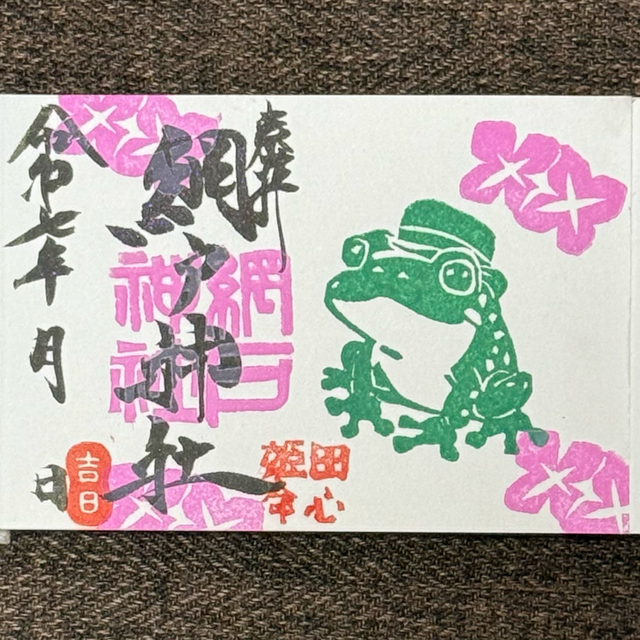 奉拝
網戸神社
網戸
神社
令和七年 月
日
吉日
田
中心